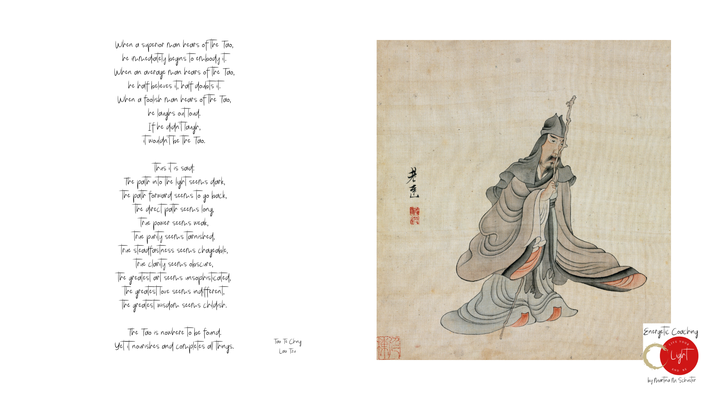 When a superior man hears of the Tao,
he immediately begins to embody it.
When an average man hears of the Tao,
he half believes it, half doubts it.
When a foolish man hears of the Tao,
he laughs out loud.
If he didn't laugh,
it wouldn't be the Tao.
Thus it is said:
The path into the light seems dark,
The path forward seems to go back,
The direct path seems long,
True power seems weak,
True purity seems tarnished,
True steadfastness seems chageable,
True clarity seems obscure,
The greatest art seems unsophisticated,
The greatest love seems indifferent,
The greatest wisdom seems childish.
The Tao is nowhere to be found.
Yet it nourishes and completes all things.
Tao Te Ching
Lao Tzu
Energetic Coaching
Light
by Martina M. Schuster